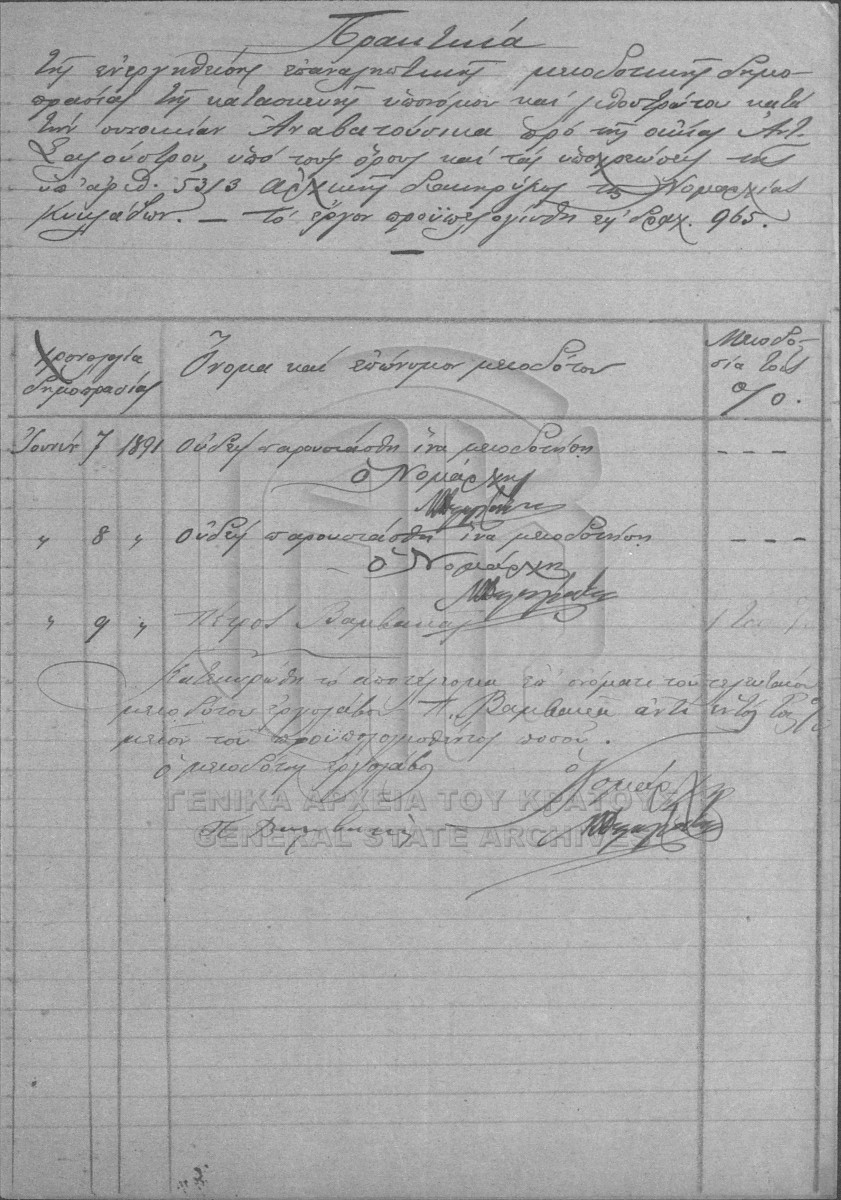 Πρακτικά
τῆς ἐνεργηθείσης ἐπαναληπτικῆς μειοδοτικῆς δημο-
πρασίας τῆς κατασκευῆς ὑπονόμου καὶ λιθοστρώτου κατὰ
τὴν συνοικίαν Ἀναβατούσικα πρὸ τῆς οἰκίας Ἀντ.
Σαλούστρου, ὑπὸ τοὺς ὅρους καὶ τὰς ὑποχρεώσεις τῆς
ὑπ' ἀριθ. 5313 ἀρχικῆς διακηρύξεως τῆς Νομαρχίας
Κυκλάδων. — τὸ ἔργον προϋπελογίσθη εἰς δραχ. 965.
Χρονολογία δημοπρασίας
Ὄνομα καὶ ἐπώνυμον μειοδότου
Μειοδοσία τοῖς %.
Ἰουνίου 7 1891 Οὐδεὶς παρουσιάσθη ἵνα μειοδοτήσῃ - - -
ὁ Νομάρχης
" 8 " Οὐδεὶς παρουσιάσθη ἵνα μειοδοτήσῃ - - -
ὁ Νομάρχης
" 9 " Πέτρος Βαμβακᾶς 1 τοῖς %
Κατεκυρώθη τὸ ἀποτέλεσμα ἐπ' ὀνόματι τοῦ τελευταίου
μειοδότου ἐργολάβου Π. Βαμβακᾶ ἀντὶ ἑνὸς τοῖς %
μεῖον τοῦ προϋπολογισθέντος ποσοῦ.
ὁ μειοδότης ἐργολάβος ὁ Νομάρχης
Π Βαμβακᾶς
ΓΕΝΙΚΑ ΑΡΧΕΙΑ ΤΟΥ ΚΡΑΤΟΥΣ
GENERAL STATE ARCHIVES